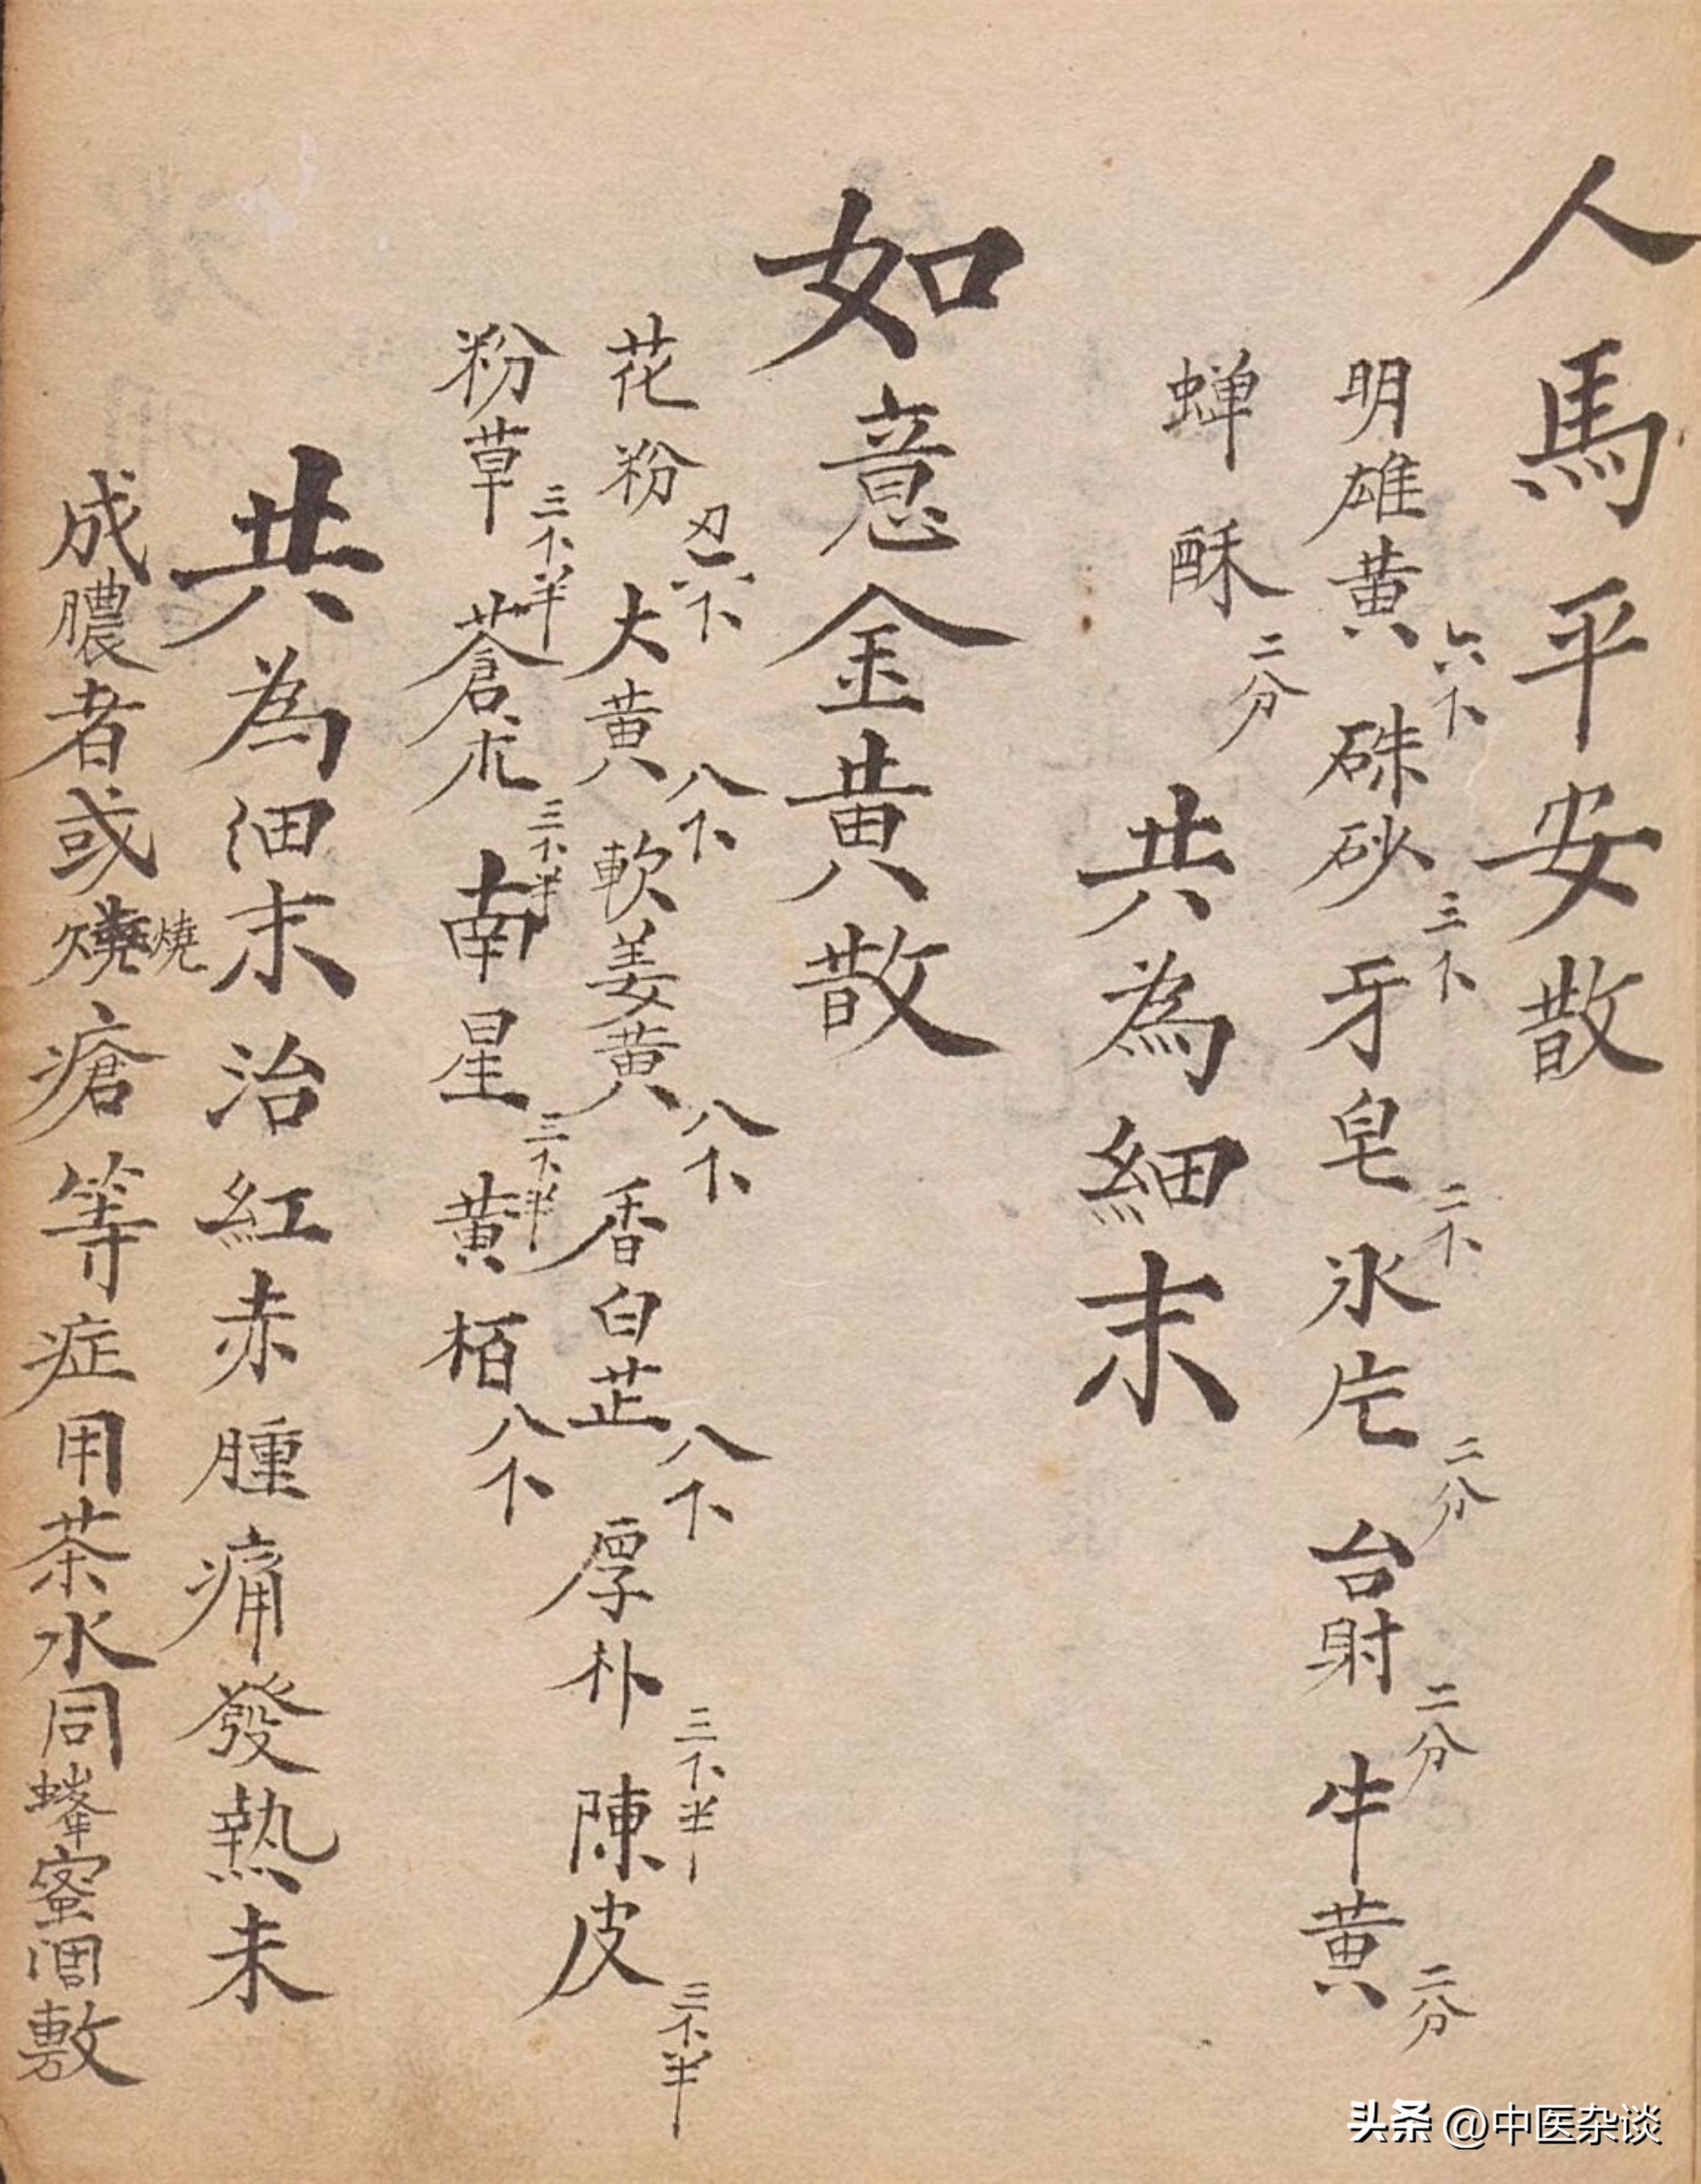 人馬平安散
明雄黄六个 硃砂三个 牙皂二个 氷片二分 台射二分 牛黄二分
蝉酥二分 共為細末
如意金黄散
花粉 大黄八个 軟姜黄八个 香白芷八个 厚朴三个半 陳皮三个半
粉草三个半 蒼朮三个半 南星三个半 黄栢八个
共為細末治紅赤腫痛發熱未
成膿者或燒瘡等症用茶水同蜂蜜調敷
燒
头条 @中医杂谈